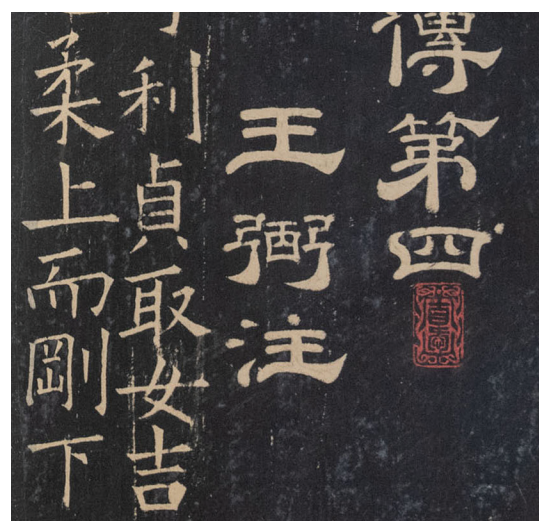 傳第四
王弼注
利貞取女吉
柔上而剛下